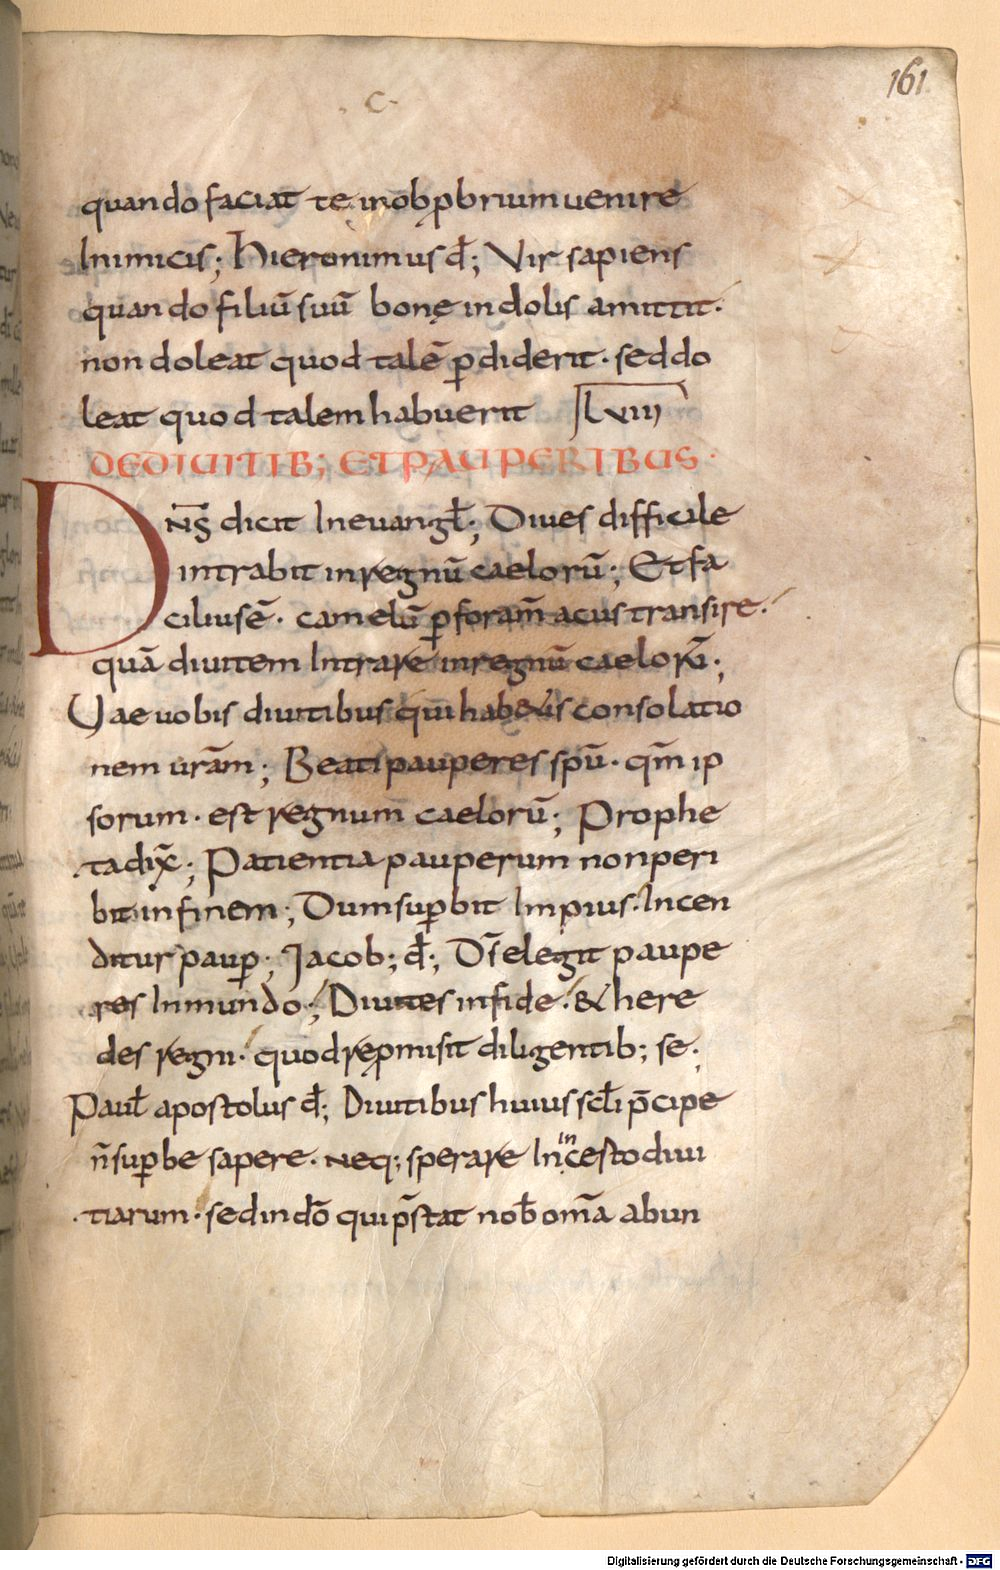 161
.c.
quando faciat te in obp̄brium uenire
Inimicis; Hieronimus dt̄; Vir sapiens
quando filiū suū bonę indolis amittit·
non doleat quod talē ꝑdiderit· sed do
leat quod talem habuerit LVIII
DE DIUITIB; ET PAUPERIBUS·
DN̄S dicit In euangł; Diues difficile
intrabit in regnū caelorū; Et fa
cilius ē· camelū ꝑ foram̄ acus transire·
quā diuitem Intrare in regnū caeloꝝ;
Uae uobis diuitibus qui hab&is consolatio
nem ur̄am; Beati pauperes sp̄u· qm̄ ip
sorum· est regnum caelorū; Prophe
ta dix̄; Patientia pauperum non peri
bit in finem; Dum suꝑbit Impius· Incen
ditur pauꝑ; Jacob; dt̄; Ds̄ elegit paupe
res In mundo; Diuites in fide· & here
des regni· quod rep̄misit diligentib; se·
Pauł apostolus dt̄; Diuitibus huius scłi p̄cipe
n̄ suꝑbe sapere· neq; sperare In incesto diui
tiarum· sed in dō qui p̄stat nob̄ om̄a abun
Digitalisierung gefördert durch die Deutsche Forschungsgemeinschaft - DFG